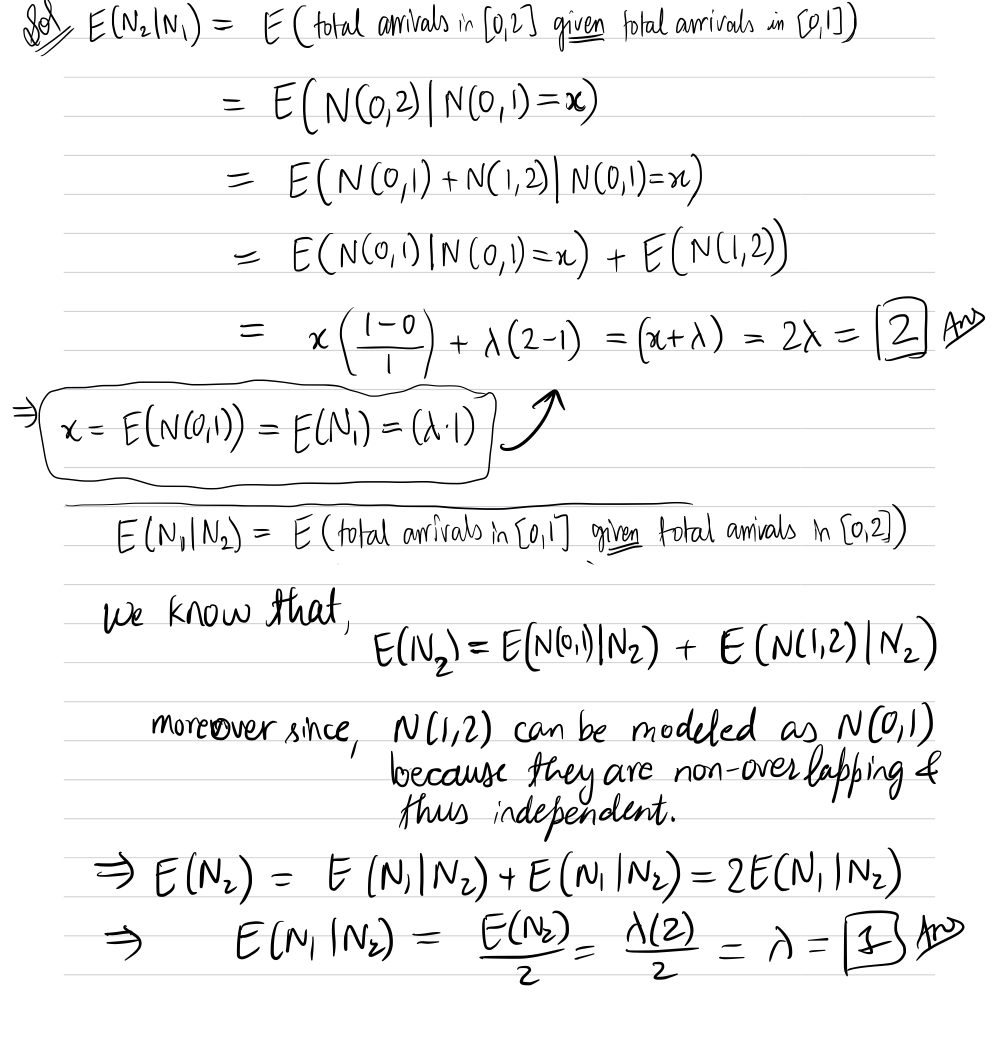 Sol E(N₂|N₁) = E(total arrivals in [0,2] given total arrivals in [0,1])
= E(N(0,2)|N(0,1)=x)
= E(N(0,1)+N(1,2)|N(0,1)=x)
= E(N(0,1)|N(0,1)=x) + E(N(1,2))
= x((1-0)/1) + λ(2-1) = (x+λ) = 2λ = 2 Ans
⇒ x = E(N(0,1)) = E(N₁) = (λ·1)
E(N₁|N₂) = E(total arrivals in [0,1] given total arrivals in [0,2])
we know that,
E(N₂) = E(N(0,1)|N₂) + E(N(1,2)|N₂)
moreover since, N(1,2) can be modeled as N(0,1)
because they are non-overlapping &
thus independent.
⇒ E(N₂) = E(N₁|N₂) + E(N₁|N₂) = 2E(N₁|N₂)
⇒ E(N₁|N₂) = E(N₂)/2 = λ(2)/2 = λ = 1 Ans